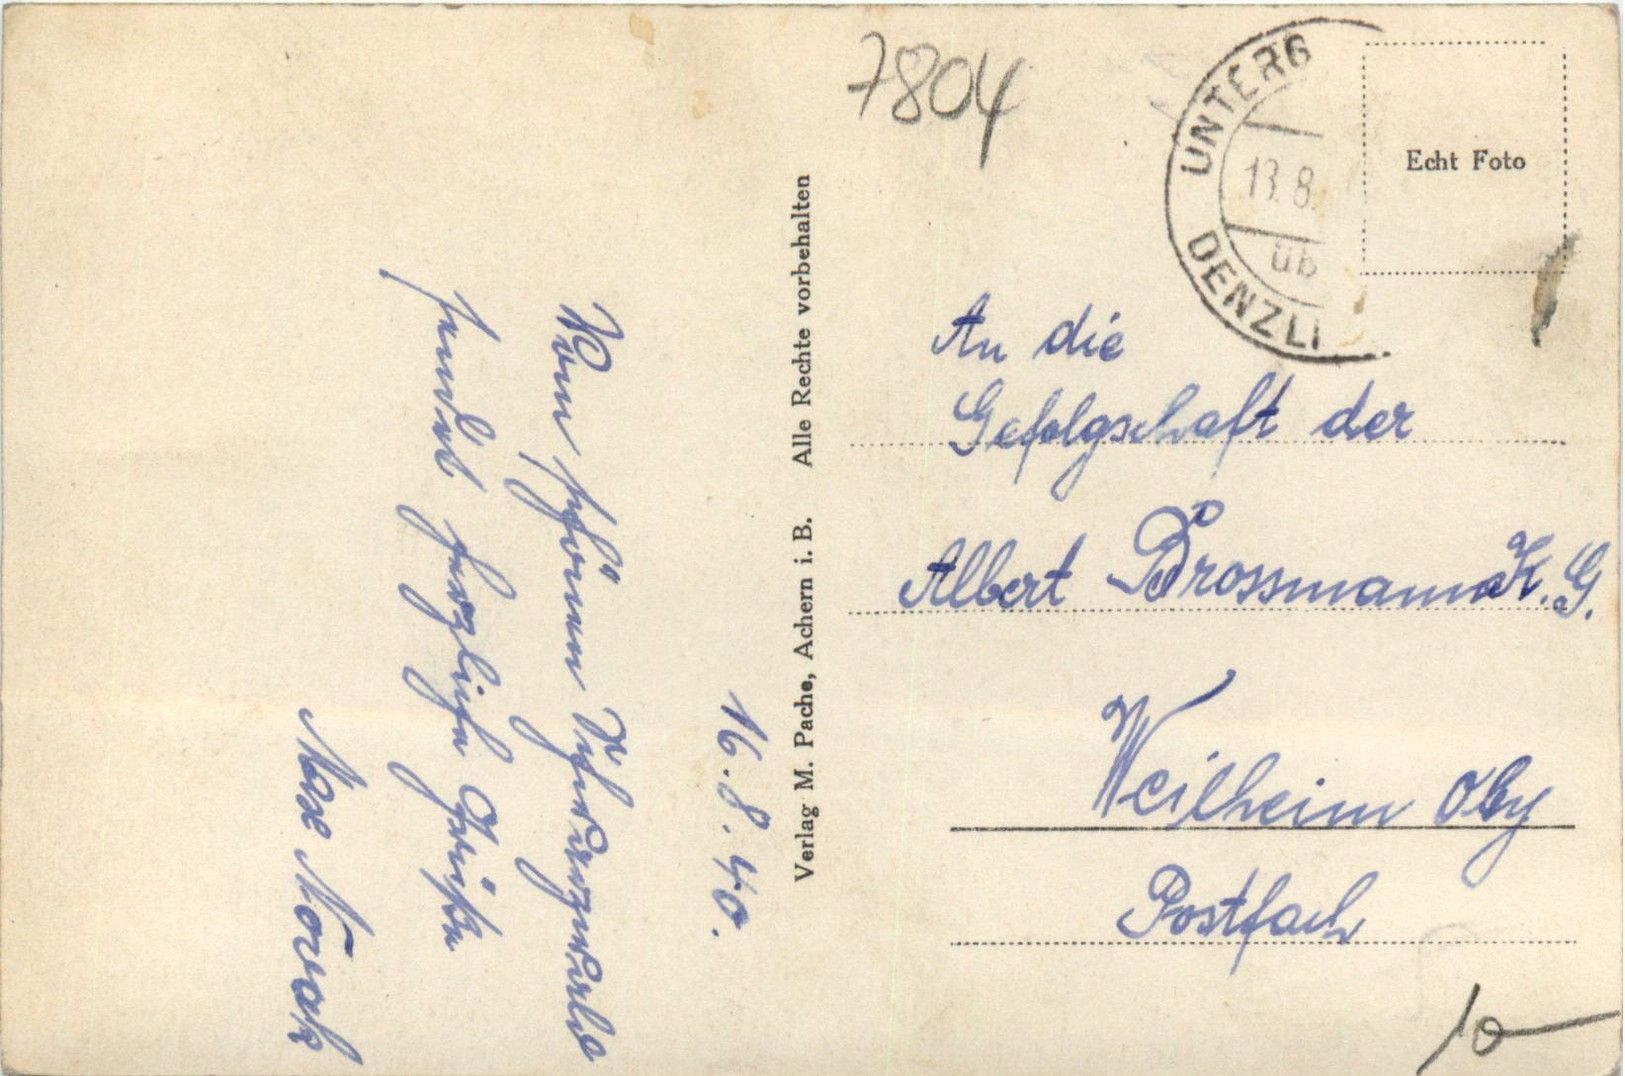 16.8.40.
Vom schönen Schwarzwalde
sendet herzliche Grüße
Max Nowak
Verlag M. Pache, Achern i. B. Alle Rechte vorbehalten
7804
UNTERG
13.8.
üb
DENZLI
Echt Foto
An die
Gefolgschaft der
Albert Brossmann K.G.
Weilheim Oby
Postfach
10